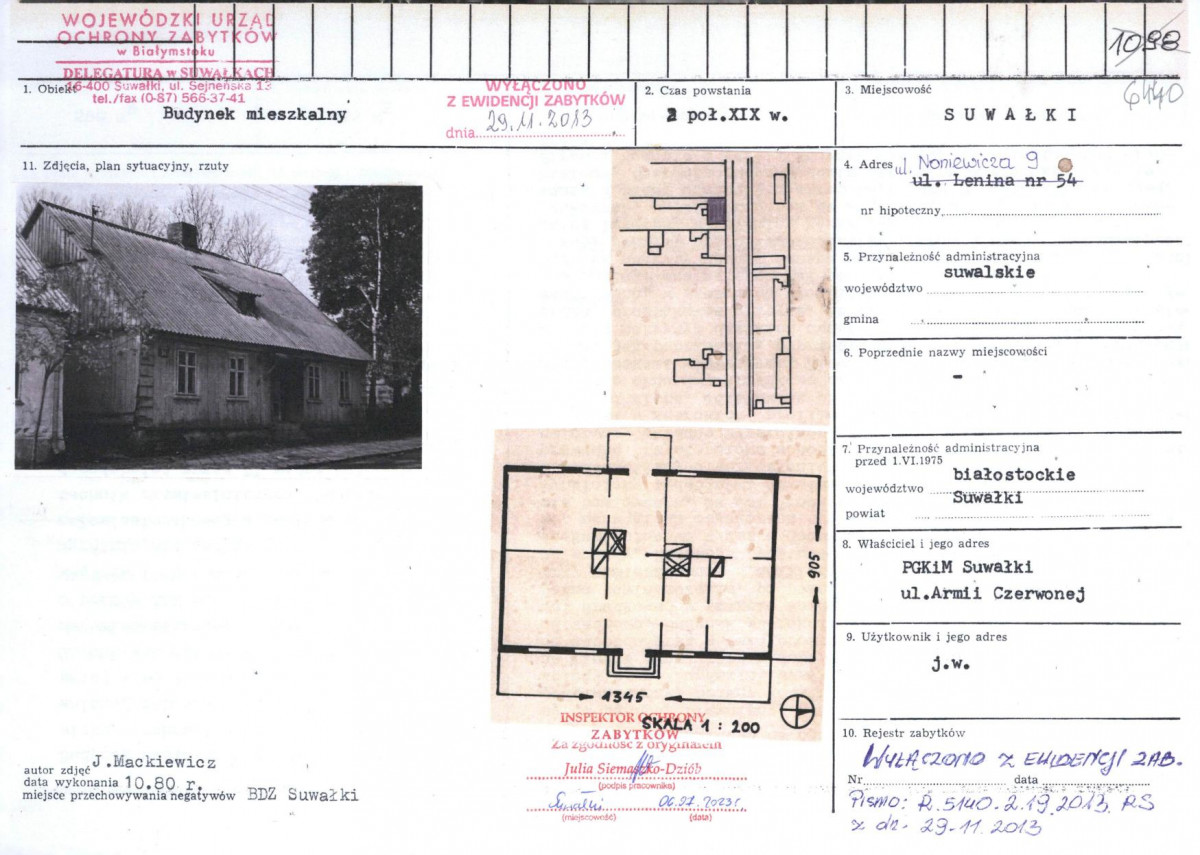 WOJEWÓDZKI URZĄD
OCHRONY ZABYTKÓW
w Białymstoku
DELEGATURA w SUWAŁKACH
16-400 Suwałki, ul. Sejneńska 13
tel./fax (0-87) 566-37-41
1098
6440
1. Obiekt
Budynek mieszkalny
WYŁĄCZONO
Z EWIDENCJI ZABYTKÓW
dnia 29.11.2013
2. Czas powstania
2 poł.XIX w.
3. Miejscowość
SUWAŁKI
11. Zdjęcia, plan sytuacyjny, rzuty
4. Adres ul. Noniewicza 9
ul. Lenina nr 54
nr hipoteczny
5. Przynależność administracyjna
suwalskie
województwo
gmina
6. Poprzednie nazwy miejscowości
-
7. Przynależność administracyjna
przed 1.VI.1975
białostockie
województwo
Suwałki
powiat
8. Właściciel i jego adres
PGKiM Suwałki
ul.Armii Czerwonej
9. Użytkownik i jego adres
j.w.
10. Rejestr zabytków
WYŁĄCZONO Z EWIDENCJI ZAB.
Nr data
Pismo: R.5140.2.19.2013.RS
z dn. 29.11.2013
905
1345
SKALA 1 : 200
INSPEKTOR OCHRONY
ZABYTKÓW
Za zgodność z oryginałem
Julia Siemaszko-Dziób
(podpis pracownika)
Suwałki 06.07.2023 r.
(miejscowość) (data)
autor zdjęć J.Mackiewicz
data wykonania 10.80 r.
miejsce przechowywania negatywów BDZ Suwałki